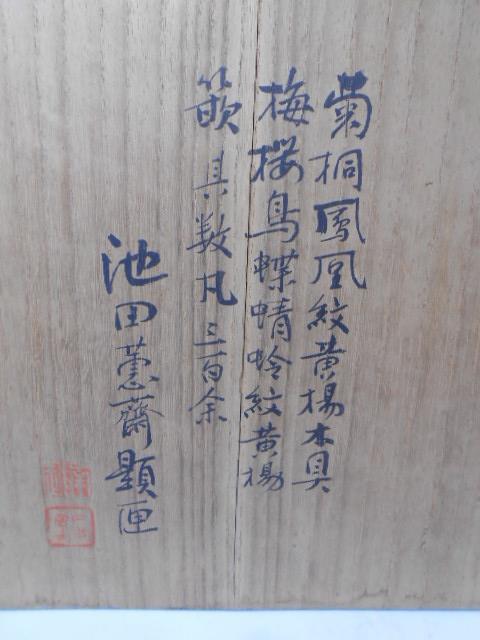 菊桐鳳凰紋黄楊本具
梅桜鳥蝶蜻蛉紋黄楊
籨具数凡三百余
池田蕙齋顕匣